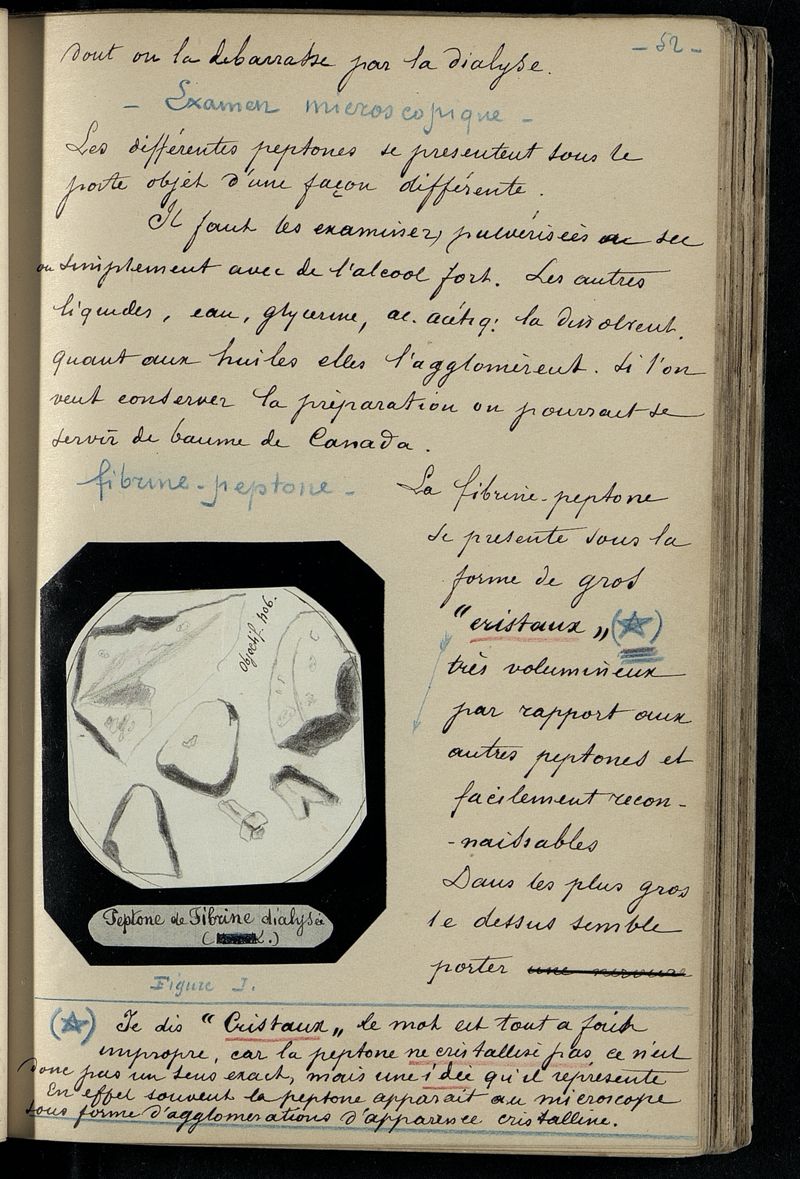 - 52 -
dont on la debarrasse par la dialyse.
- Examen microscopique -
Les différentes peptones se presentent sous le
porte objet d'une façon différente.
Il faut les examiner, pulvérisées au sec
ou simplement avec de l'alcool fort. Les autres
liquides, eau, glycerine, ac. acétiq: la dissolvent.
quant aux huiles elles l'agglomèrent. Si l'on
veut conserver la préparation on pourrait se
servir de baume de Canada.
fibrine-peptone -
La fibrine-peptone
se presente sous la
forme de gros
"cristaux" (☆)
très volumineux
par rapport aux
autres peptones et
facilement recon-
-naissables
Dans les plus gros
le dessus semble
porter une nervure
Objectif. no6.
Peptone de Fibrine dialysée
Figure I.
(☆) Je dis "Cristaux" le mot est tout a fait
impropre, car la peptone ne cristallise pas ce n'est
donc pas un sens exact, mais une idée qu'il représente
En effet souvent la peptone apparait au microscope
sous forme d'agglomerations d'apparence cristalline.